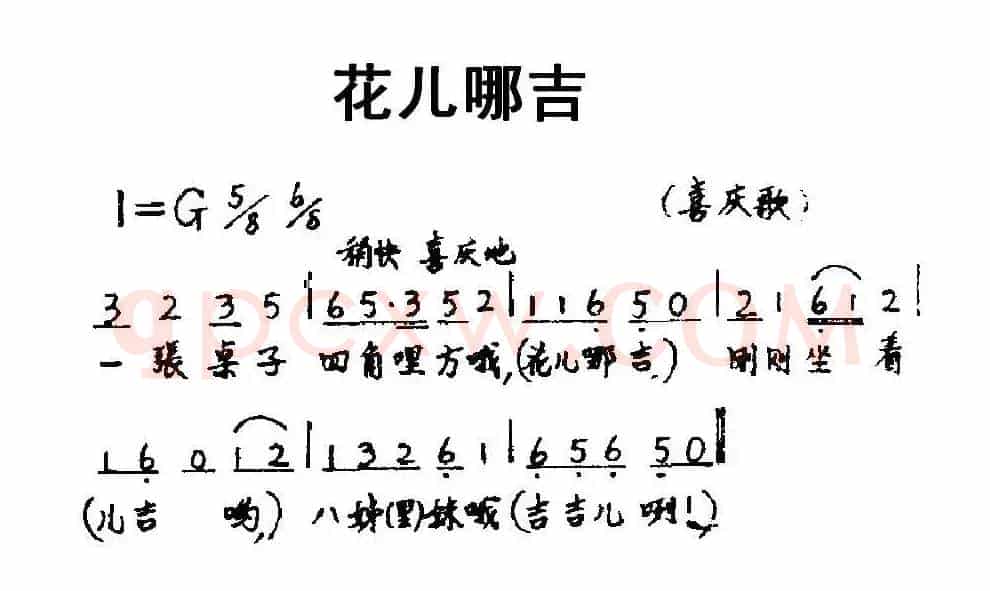 花儿哪吉
1=G 5/8 6/8 (喜庆歌)
稍快 喜庆地
3 2 3 5 | 6 5 · 3 5 2 | 1 1 6 5 0 | 2 1 6 1 2 |
一 張 桌 子 四角哩方哦,(花儿哪吉.) 刚刚坐 着
1 6 0 1 2 | 1 3 2 6 1 | 6 5 6 5 0 ‖
(儿吉 哟,) 八姊(里)妹哦(吉吉儿咧!)